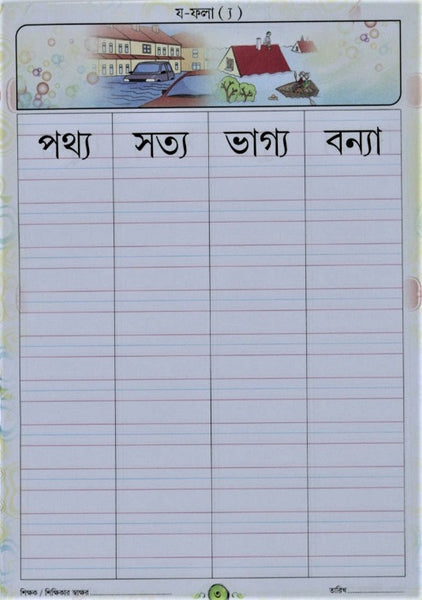 য-ফলা ( ্য )
পথ্য সত্য ভাগ্য বন্যা
শিক্ষক / শিক্ষিকার স্বাক্ষর ........................ ৩ তারিখ ........................